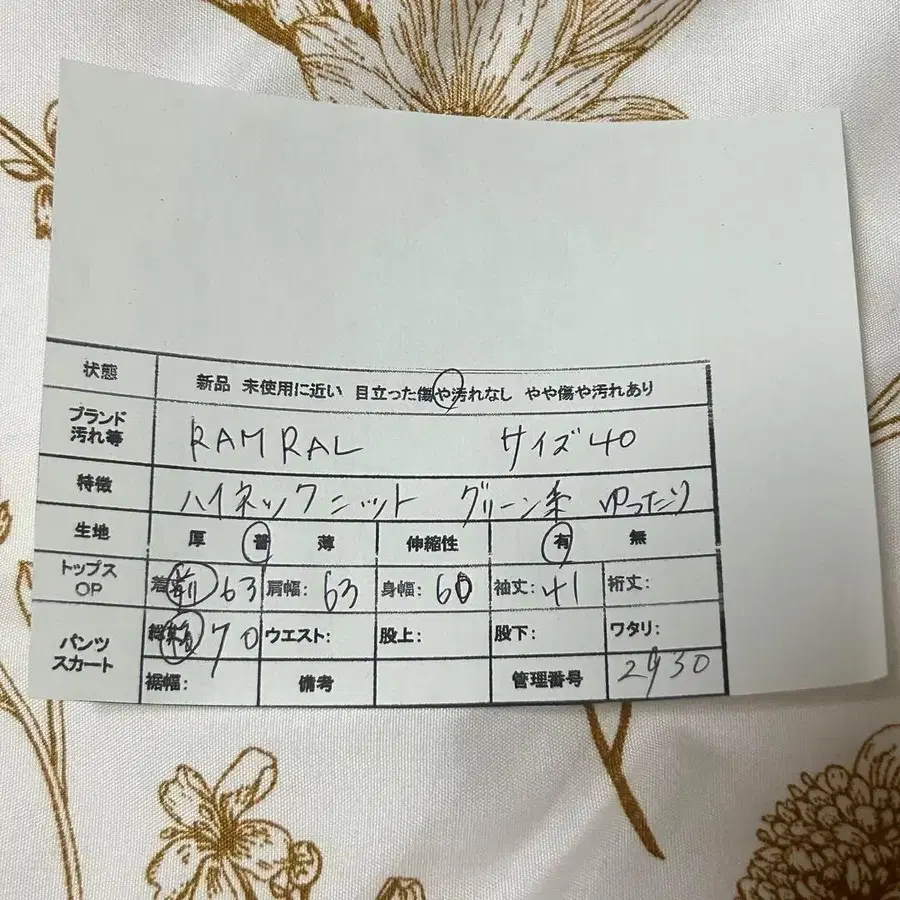 状態 新品 未使用に近い 目立った傷や汚れなし やや傷や汚れあり
ブランド 汚れ等 RAM RAL サイズ40
特徴 ハイネックニット グリーン系 ゆったり
生地 厚 普 薄 伸縮性 有 無
トップス OP 着 前 63 肩幅: 63 身幅: 60 袖丈: 41 裄丈:
パンツ スカート 総 70 ウエスト: 股上: 股下: ワタリ:
裾幅: 備考 管理番号 2930